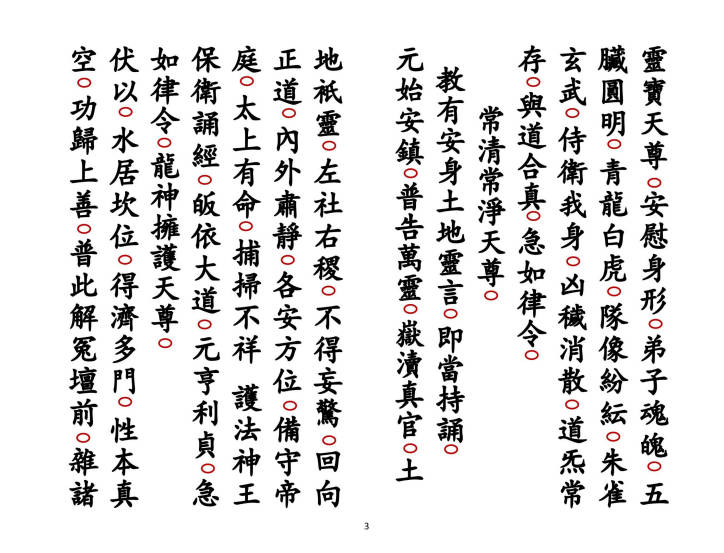 靈寶天尊○安慰身形○弟子魂魄○五
臟圓明○青龍白虎○隊像紛紜○朱雀
玄武○侍衛我身○凶穢消散○道炁常
存○與道合真○急如律令○
常清常淨天尊○
教有安身土地靈言○即當持誦○
元始安鎮○普告萬靈○嶽瀆真官○土
地祇靈○左社右稷○不得妄驚○回向
正道○內外肅靜○各安方位○備守帝
庭○太上有命○捕掃不祥 護法神王
保衛誦經○皈依大道○元亨利貞○急
如律令○龍神擁護天尊○
伏以○水居坎位○得濟多門○性本真
空○功歸上善○普此解冤壇前○雜諸
3